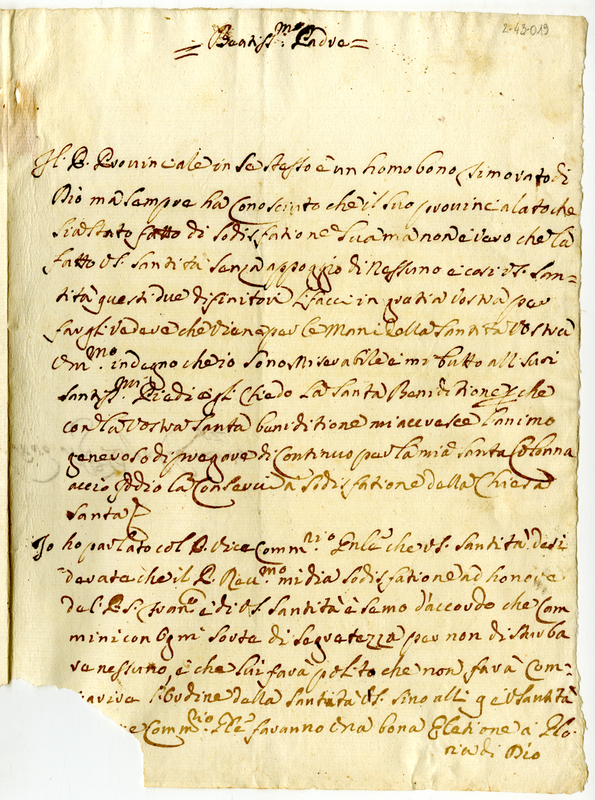 2-43-019
= Beatiss.mo Padre =
Il P. Provinciale in se stesso è un homo bono, timorato di
Dio ma sempre ha Conosciuto che il suo provincialato che
sia stato fatto di sodisfatione sua ma non è vero che la
fatto V.S. Santità senza appoggio di Nessuno e così V.S. San=
tità questi due difinitori li facci in gratia Vostra per
fargli vedere che viene per le Mani della Santità Vostra
mo. indegno che io sono Miserabile e mi butto alli suoi
Santiss.mi Piedi e gli Chiedo La Santa Beniditione che
con la Vostra Santa beniditione mi accresce l'animo
generoso di pregare di Continuo per la mia Santa Colonna
accio Iddio la Conservi à sodisfatione della Chiesa
Santa
Io ho parlato col P. Vice Comm.rio Gnle che V.S. Santità desi
derate che il P. Rev.mo mi dia sodisfatione ad honore
del P.S. Fran.co e di V.S. Santità è semo d'accordo che Com
minicon Ogni sorte di segretezza per non disturba
re nessuno, e che lui farà polito che non farà Com=
l'ordine della Santità V.S. sino alli 9 e V. Santità
Comm.rio Gnle faranno una bona Eletione a Glo.
ria di Dio